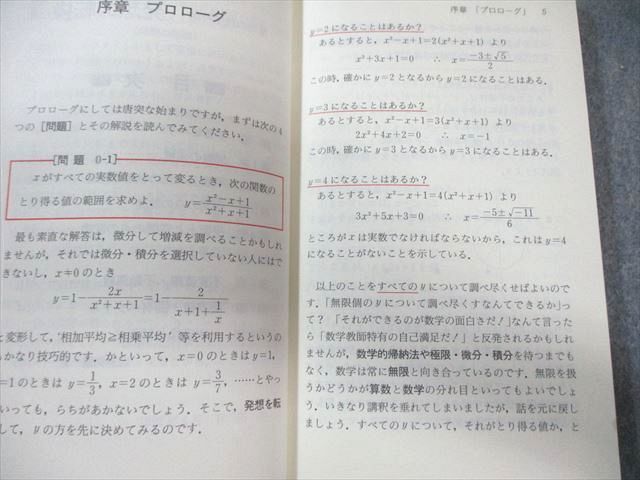 序章 プロローグ
プロローグにしては唐突な始まりですが，まずは次の4
つの［問題］とその解説を読んでみてください．
［問 題 0-1］
xがすべての実数値をとって変るとき，次の関数の
とり得る値の範囲を求めよ． y=\frac{x²-x+1}{x²+x+1}
最も素直な解答は，微分して増減を調べることかもしれ
ませんが，それでは微分・積分を選択していない人にはで
きないし，x≠0のとき
y=1-\frac{2x}{x²+x+1}=1-\frac{2}{x+1+\frac{1}{x}}
と変形して，'相加平均≧相乗平均' 等を利用するというの
もかなり技巧的です．かといって，x=0のときはy=1，
x=1のときは y=\frac{1}{3}，x=2のときは y=\frac{3}{7}，……とやっ
いっても，らちがあかないでしょう．そこで，発想を転
して，yの方を先に決めてみるのです．
序章 「プロローグ」 5
y=2になることはあるか？
あるとすると，x²-x+1=2(x²+x+1) より
x²+3x+1=0 ∴ x=\frac{-3±√5}{2}
この時，確かにy=2となるからy=2になることはある．
y=3になることはあるか？
あるとすると，x²-x+1=3(x²+x+1) より
2x²+4x+2=0 ∴ x=-1
この時，確かにy=3となるからy=3になることはある．
y=4になることはあるか？
あるとすると，x²-x+1=4(x²+x+1) より
3x²+5x+3=0 ∴ x=\frac{-5±√-11}{6}
ところがxは実数でなければならないから，これはy=4
になることがないことを示している．
以上のことをすべてのyについて調べ尽くせばよいので
す．「無限個のyについて調べ尽くすなんてできるか」っ
て？ 「それができるのが数学の面白さだ！」なんて言った
ら「数学教師特有の自己満足だ！」と反発されるかもしれ
ませんが，数学的帰納法や極限・微分・積分を待つまでも
なく，数学は常に無限と向き合っているのです．無限を扱
うかどうかが算数と数学の分れ目といってもよいでしょ
う．いきなり講釈を垂れてしまいましたが，話を元に戻し
ましょう．すべてのyについて，それがとり得る値か，と